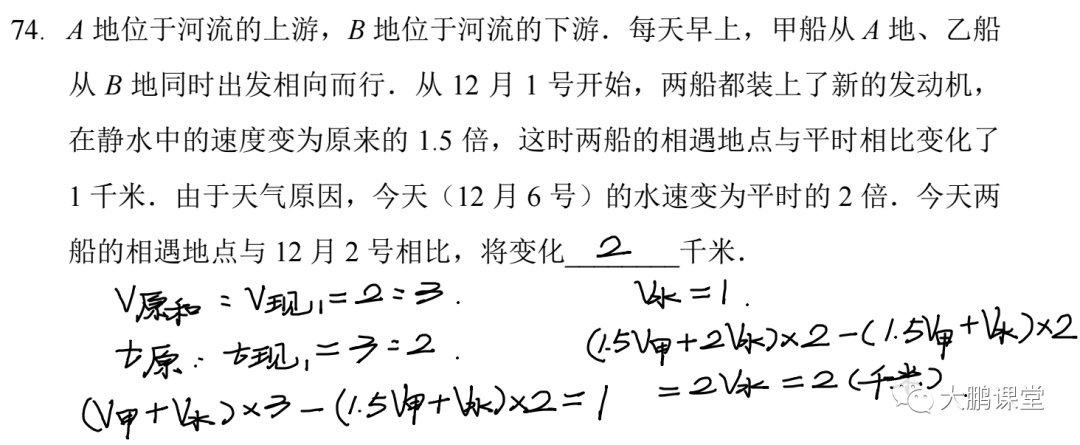 74. A 地位于河流的上游，B 地位于河流的下游．每天早上，甲船从 A 地、乙船
从 B 地同时出发相向而行．从 12 月 1 号开始，两船都装上了新的发动机，
在静水中的速度变为原来的 1.5 倍，这时两船的相遇地点与平时相比变化了
1 千米．由于天气原因，今天（12 月 6 号）的水速变为平时的 2 倍．今天两
船的相遇地点与 12 月 2 号相比，将变化 2 千米．
V原和 : V现1 = 2 : 3 .
t原 : t现1 = 3 : 2 .
(V甲 + V水) × 3 - (1.5V甲 + V水) × 2 = 1
V水 = 1 .
(1.5V甲 + 2V水) × 2 - (1.5V甲 + V水) × 2
= 2V水 = 2 (千米)
大鹏课堂